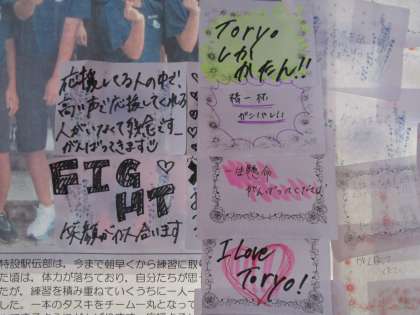 応援してる人の中で、
高い声で応援してくれる
人がいなくて残念です。
がんばってきます
FIGHT
笑顔が似合います
Toryo
しか
かたん!!
精一杯
がんばれ!!
一生懸命
がんばってください!
I Love
Toryo!
特設駅伝部は、今まで朝早くから練習に取り
た頃は、体力が落ちており、自分たちが思っ
たが、練習を積み重ねていくうちに一人一
した。一本のタスキをチーム一丸となって